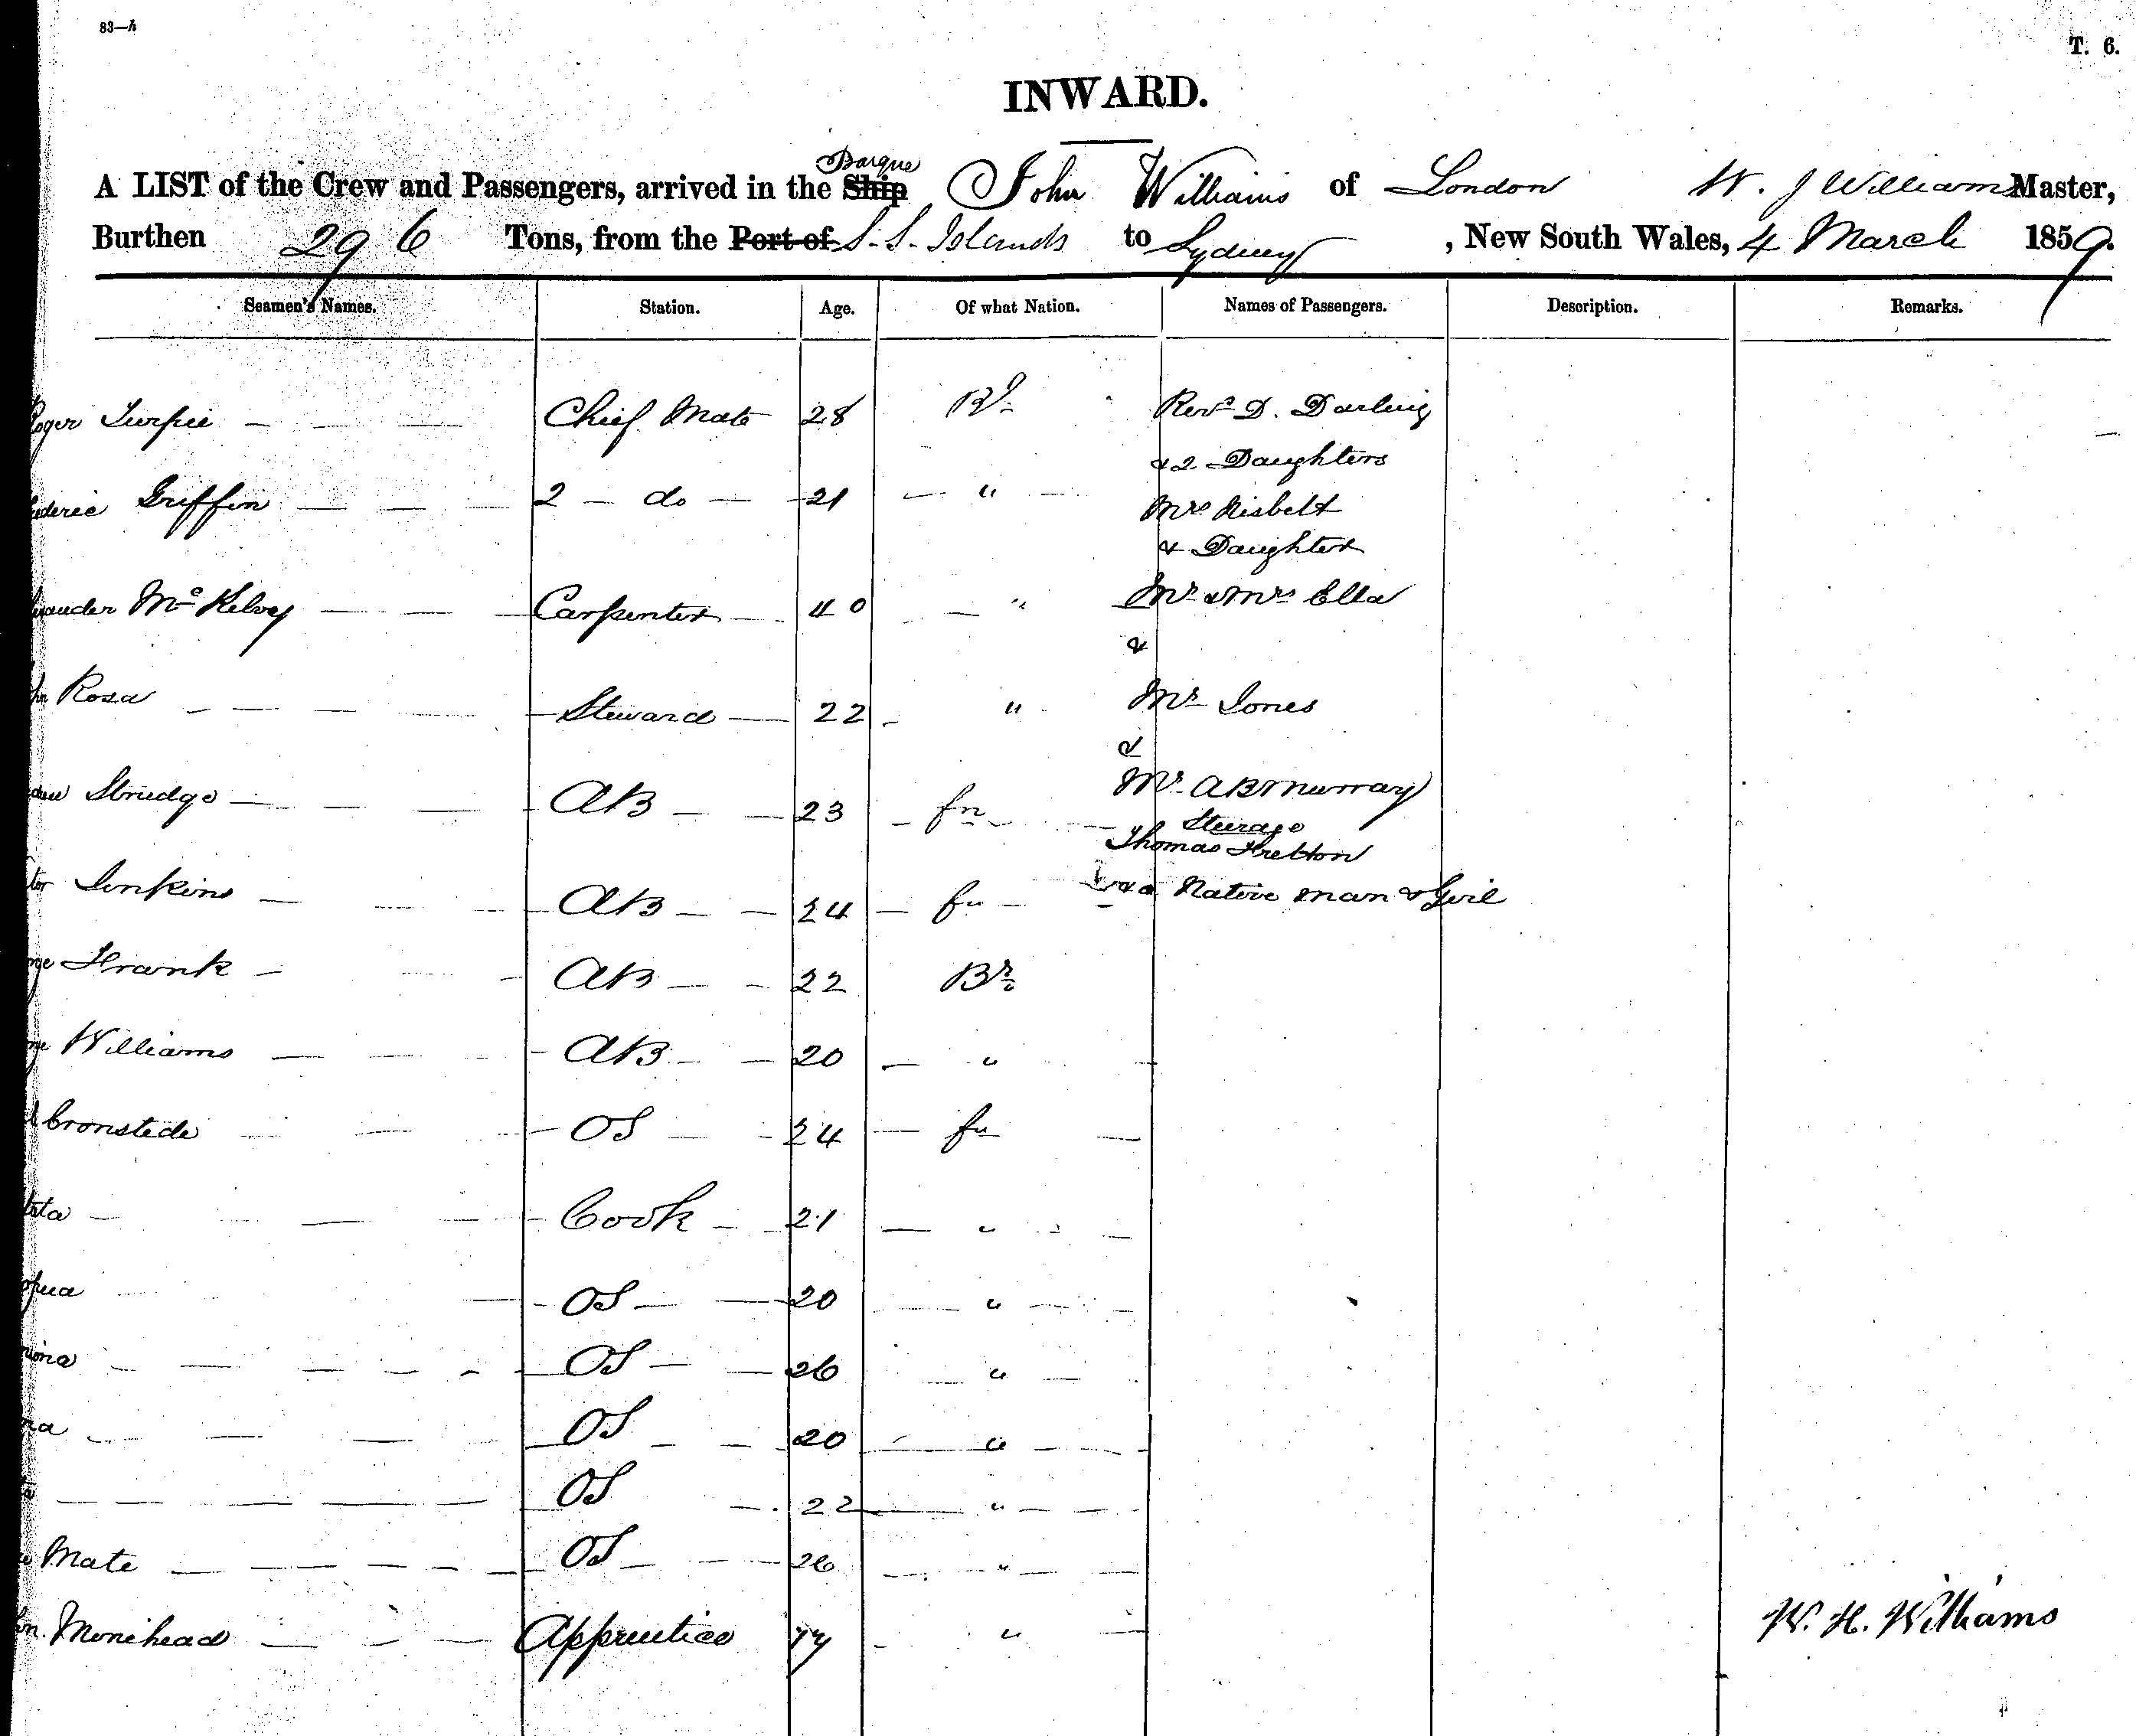 83—h
T. 6.
INWARD.
Barque
A LIST of the Crew and Passengers, arrived in the Ship John Williams of London W. J Williams Master,
Burthen 296 Tons, from the Port of S. S. Islands to Sydney, New South Wales, 4 March 1859.
Seamen's Names. Station. Age. Of what Nation. Names of Passengers. Description. Remarks.
Roger Turpie Chief Mate 28 Br Revd D. Darling
& 2 Daughters
Griffin 2 — do — 21 " Mrs Nisbett
& Daughter
McKelvey Carpenter 40 " Mr & Mrs Ella
&
Rosa Steward 22 " Mr Jones
&
Strudge AB 23 fn Mr AB Murray
Steerage
Thomas Fretton
Jenkins AB 24 fn & a Native man & Girl
Frank AB 22 Br
Williams AB 20 "
Cronstede OS 24 fn
Cook 21 "
OS 20 "
OS 26 "
OS 20 "
OS 22 "
Mate OS 26 "
Monihead Apprentice 17 "
W. H. Williams